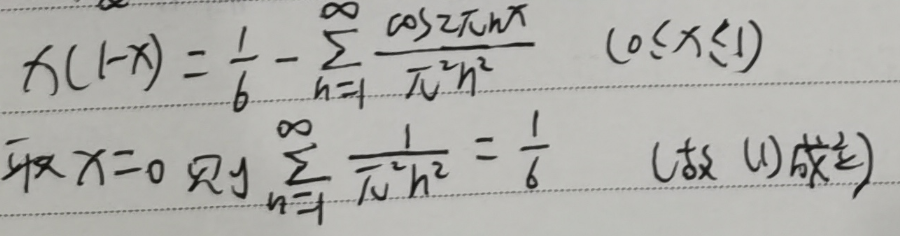 x(1-x) = 1/6 - ∑_{n=1}^{∞} cos2πnx / π²n² (0≤x≤1)
取 x=0 则 ∑_{n=1}^{∞} 1/π²n² = 1/6 (故 (1) 成立)